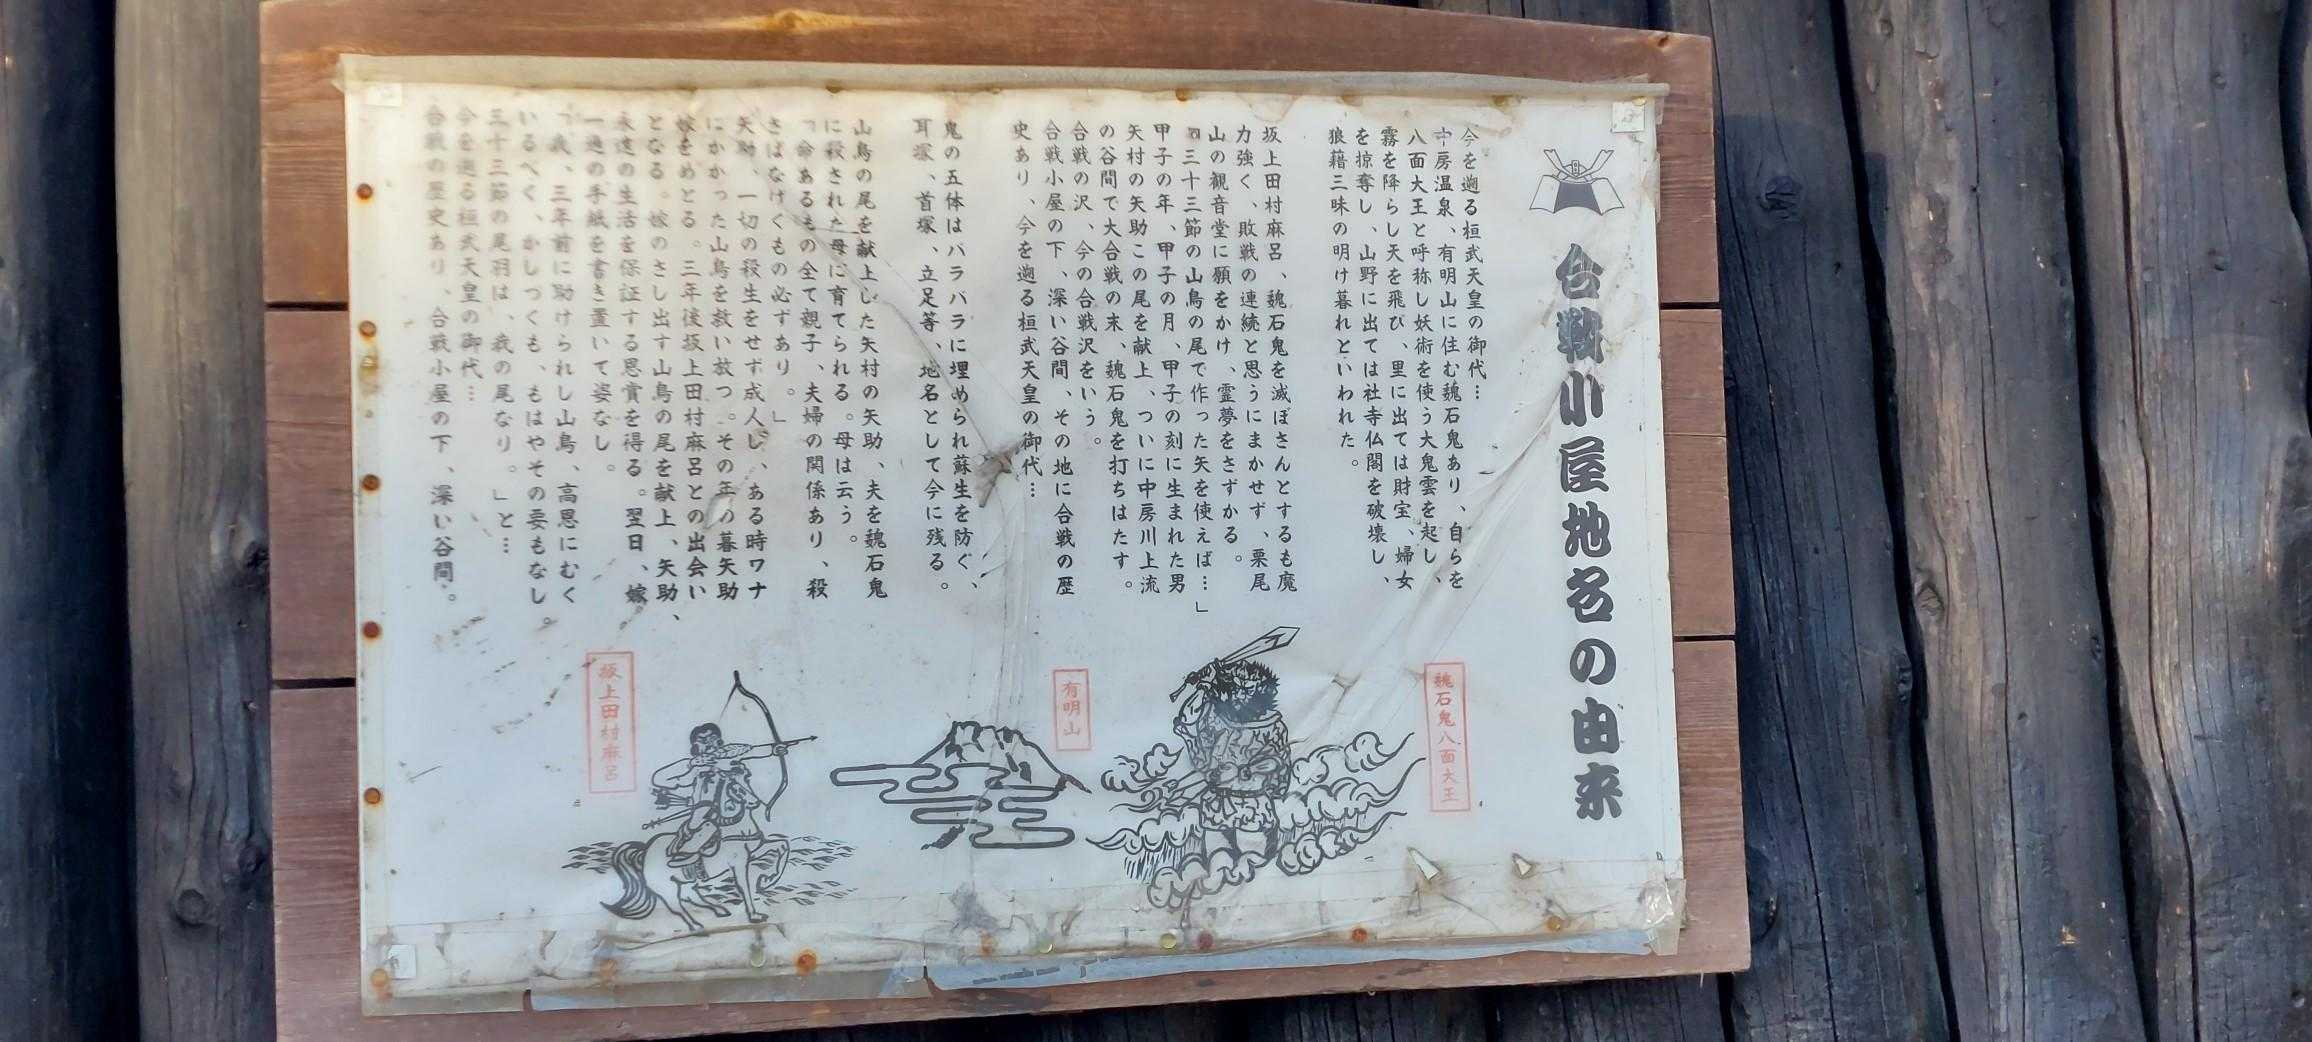 合戦小屋地名の由来
今を遡る桓武天皇の御代…
中房温泉、有明山に住む魏石鬼あり、自らを
八面大王と呼称し妖術を使う大鬼雲を起し、
霧を降らし天を飛び、里に出ては財宝、婦女
を掠奪し、山野に出ては社寺仏閣を破壊し、
狼藉三昧の明け暮れといわれた。
坂上田村麻呂、魏石鬼を滅ぼさんとするも魔
力強く、敗戦の連続と思うにまかせず、栗尾
山の観音堂に願をかけ、霊夢をさずかる。
「三十三節の山鳥の尾で作った矢を使えば…」
甲子の年、甲子の月、甲子の刻に生まれた男
矢村の矢助この尾を献上、ついに中房川上流
の谷間で大合戦の末、魏石鬼を打ちはたす。
合戦の沢、今の合戦沢をいう。
合戦小屋の下、深い谷間、その地に合戦の歴
史あり、今を遡る桓武天皇の御代…
鬼の五体はバラバラに埋められ蘇生を防ぐ、
耳塚、首塚、立足等、地名として今に残る。
山鳥の尾を献上した矢村の矢助、夫を魏石鬼
に殺された母に育てられる。母は云う。
「命あるもの全て親子、夫婦の関係あり、殺
さばなげくもの必ずあり。」
矢助、一切の殺生をせず成人し、ある時ワナ
にかかった山鳥を救い放つ。その年の暮矢助
嫁をめとる。三年後坂上田村麻呂との出会い
となる。嫁のさし出す山鳥の尾を献上、矢助、
永遠の生活を保証する恩賞を得る。翌日、嫁
一通の手紙を書き置いて姿なし。
「我、三年前に助けられし山鳥、高恩にむく
いるべく、かしつくも、もはやその要もなし。
三十三節の尾羽は、我の尾なり。」と…
今を遡る桓武天皇の御代…
合戦の歴史あり、合戦小屋の下、深い谷間。
魏石鬼八面大王
有明山
坂上田村麻呂